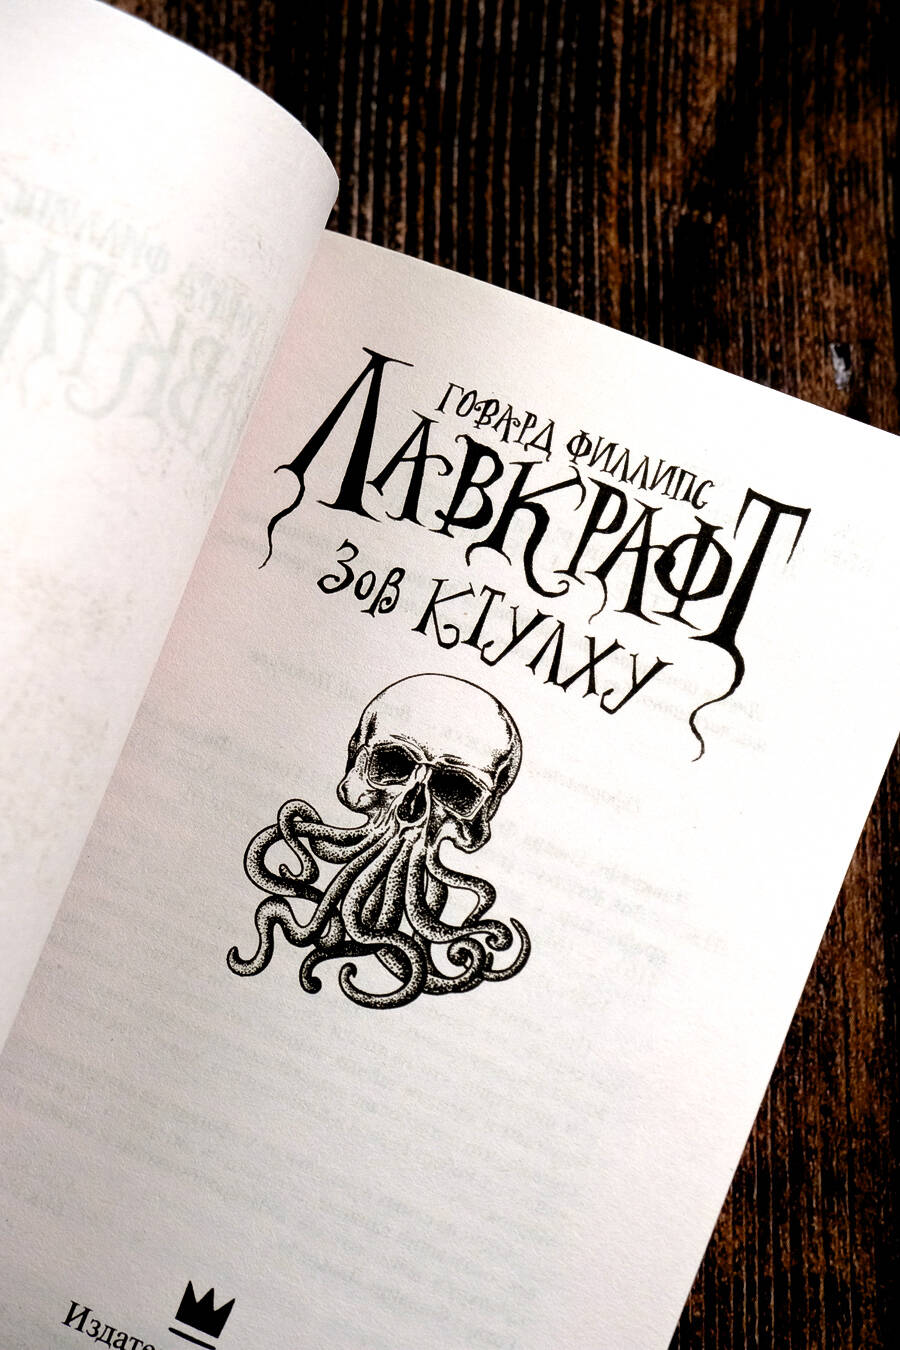 ГОВАРД ФИЛЛИПС
ЛАВКРАФТ
ЗОВ КТУЛХУ
Издате